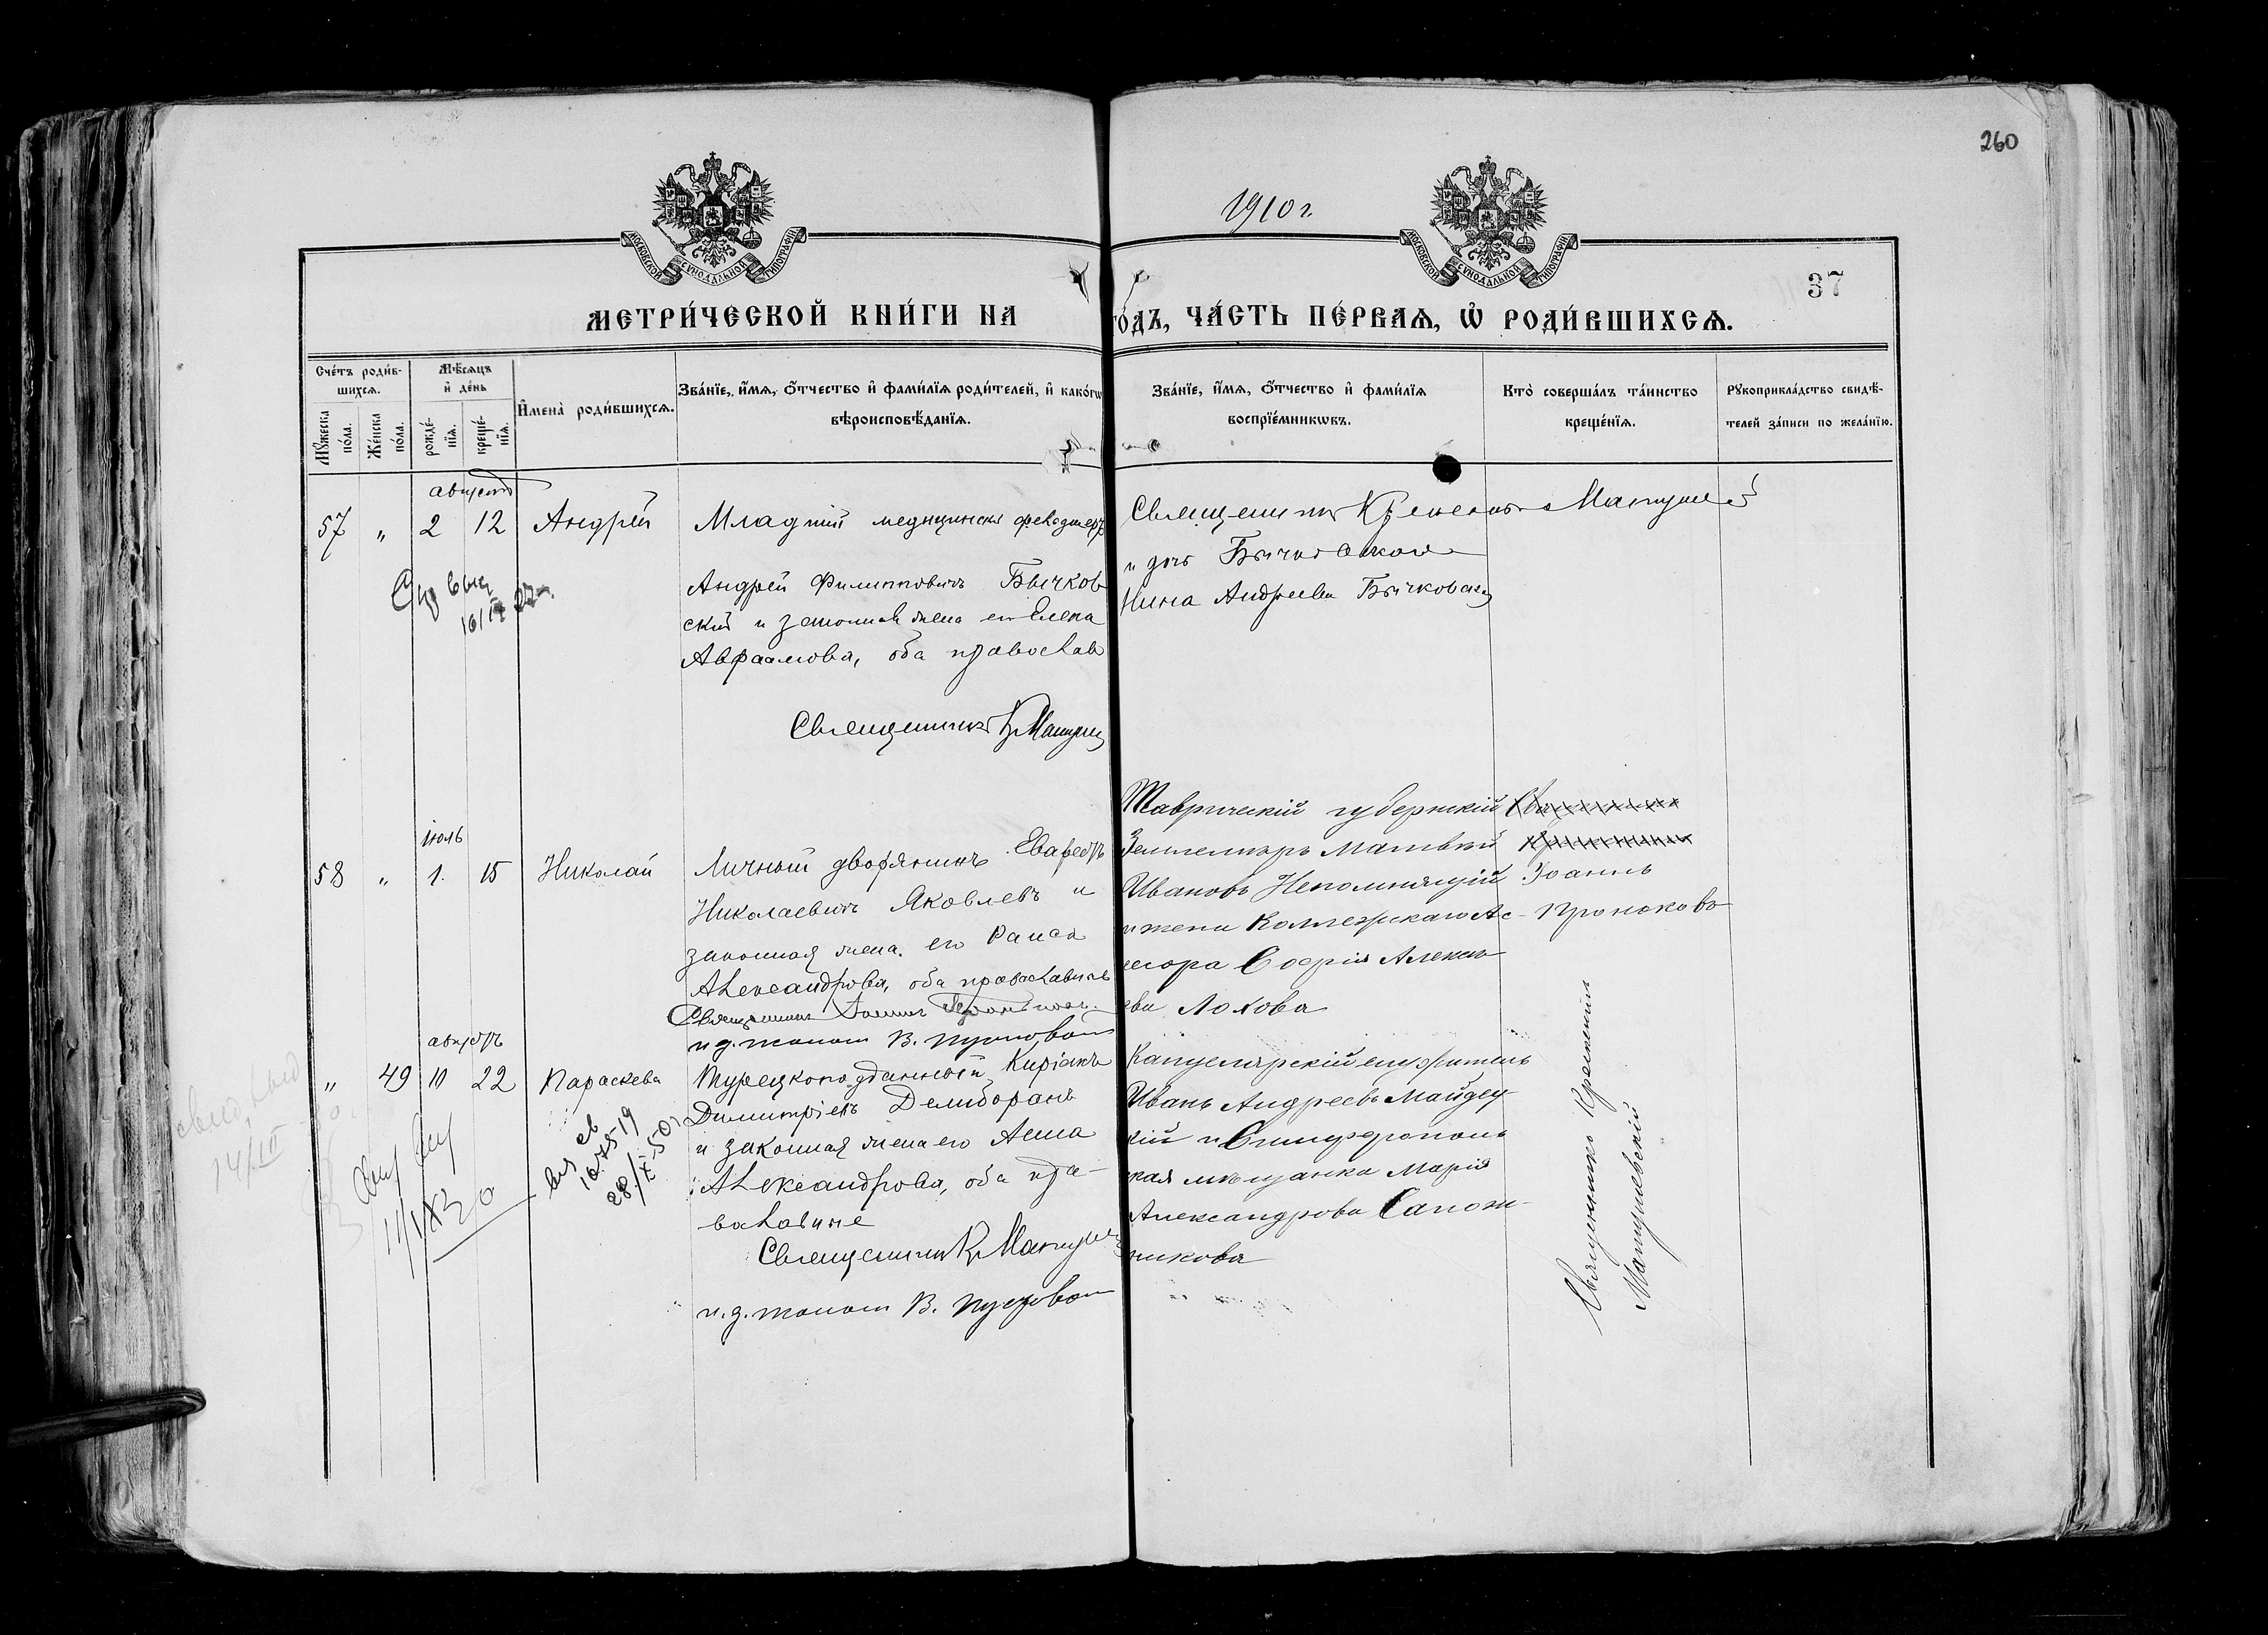 260
1910 г.
МОСКОВСКОЙ СѴНОДАЛЬНОЙ ТИПОГРАФИИ
МОСКОВСКОЙ СѴНОДАЛЬНОЙ ТИПОГРАФИИ
37
МЕТРИ́ЧЕСКОЙ КНИ́ГИ НА ГО́ДЪ, ЧА́СТЬ ПЕ́РВАѦ, Ѡ РОДИ́ВШИХСѦ.
Сче́тъ роди́в-
шихсѧ.
Мꙋжеска по́ла.
Же́нска по́ла.
Мѣсѧцъ и де́нь
рожде́-нїѧ.
креще́-нїѧ.
Имена̀ роди́вшихсѧ.
Зва́нїе, и́мѧ, о́тчество и фами́лїѧ роди́телей, и како́гѡ
вѣроисповѣ́данїѧ.
Зва́нїе, и́мѧ, о́тчество и фами́лїѧ
воспрїе́мникѡвъ.
Кто̀ соверша́лъ та́инство
креще́нїѧ.
Рꙋкоприкла́дство свидѣ́-
телей за́писи по жела́нїю.
августъ
57 " 2 12 Андрей
Младшій медицинскі фельдшеръ
Андрей Филипповичъ Бычков
скій и законная жена его Елена
Авраамова, оба православ
Священникъ К Матуше
Священникъ Матуше
и дочь
Нина Андреева Бычковская
іюль
58 " 1. 15 Николай
Личный дворянинъ
Николаевичъ Яковлевъ и
законная жена его Раиса
Александрова, оба православные
Священникъ Іоаннъ
и. д. псалом В.
Таврическій губернскій
Землемѣръ Матвѣй
Ивановъ Непомнящій
и жена Коллежскаго Ас-
сесора Софія Алексѣ-
ева Лохова
Іоаннъ
августъ
" 49 10 22 Параскева
Турецкоподданный Киріакъ
Димитріевъ Делиборанъ
и законная жена его Анна
Александрова, оба пра-
вославные
Священникъ К Матуше
В.
Канцелярскій служитель
Иванъ Андреевъ Майдец-
кій и Симферополь
ская мѣщанка Марія
Александрова Сапож-
никова
Священникъ
Матушевскій
28/X-50г
14/III